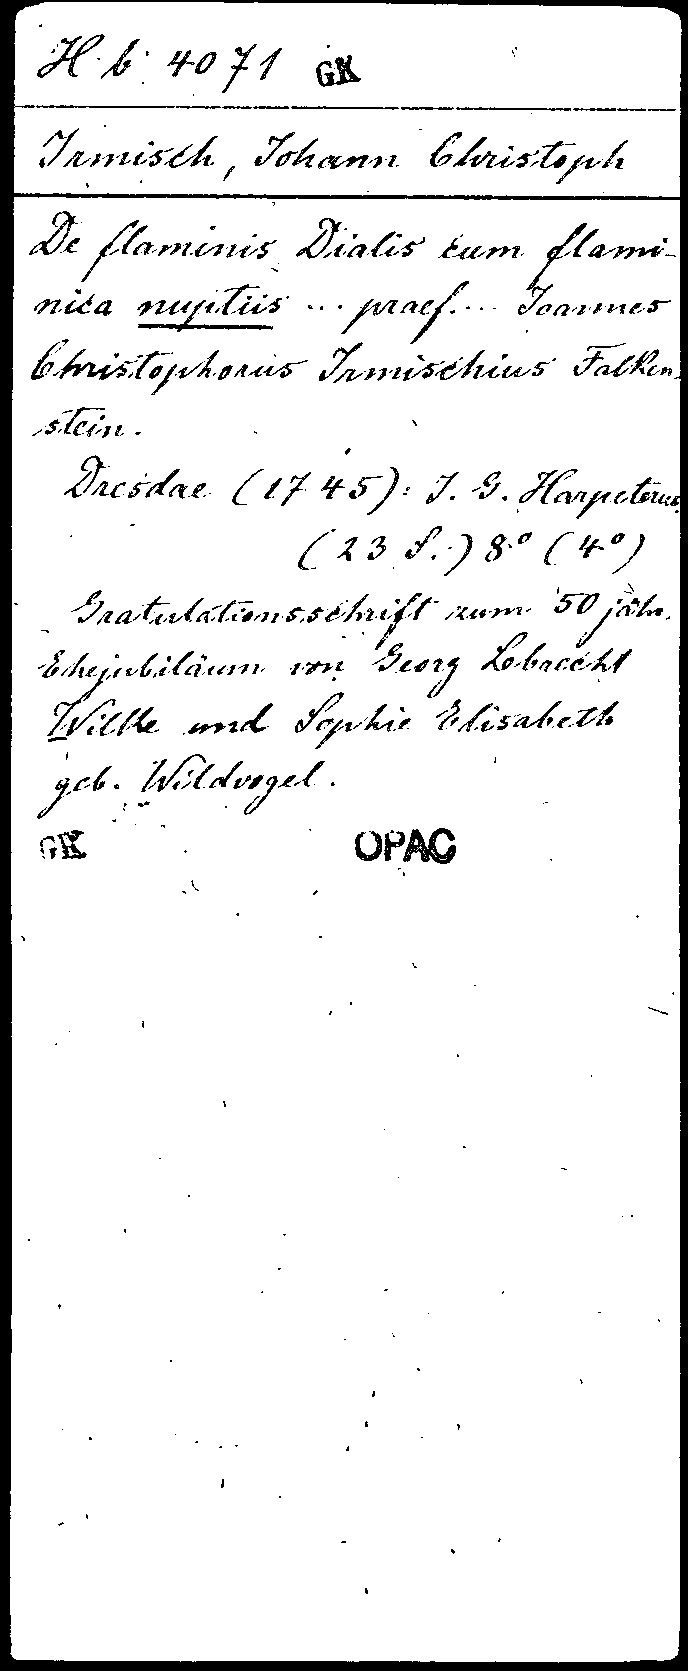 Hb 4071 GK
Irmisch, Johann Christoph
De flaminis Dialis cum flami-
nica nuptiis ... praef.... Joannes
Christophorus Irmischius Falken-
stein.
Dresdae (1745): J. G. Harpeterus.
(23 S.) 8° (4°)
Gratulationsschrift zum 50 jähr.
Ehejubiläum von Georg Lebrecht
Wilke und Sophie Elisabeth
geb. Wildvogel.
GK OPAC